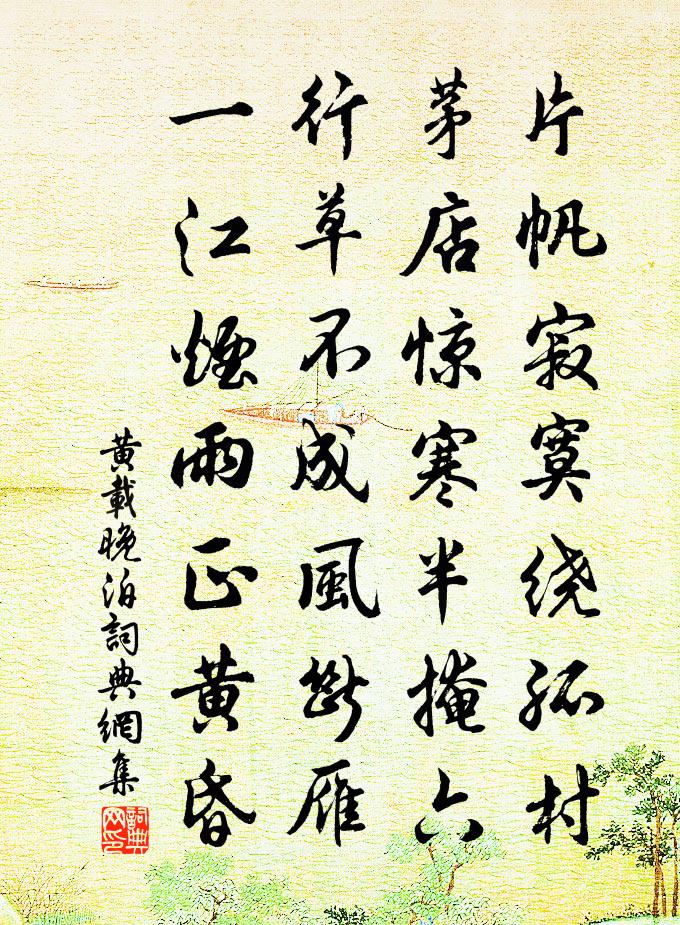 片帆寂寞绕孤村
茅店惊寒半掩门
行草不成風断雁
一江煙雨正黄昏
黄載晚泊詞典網集
詞典
网印